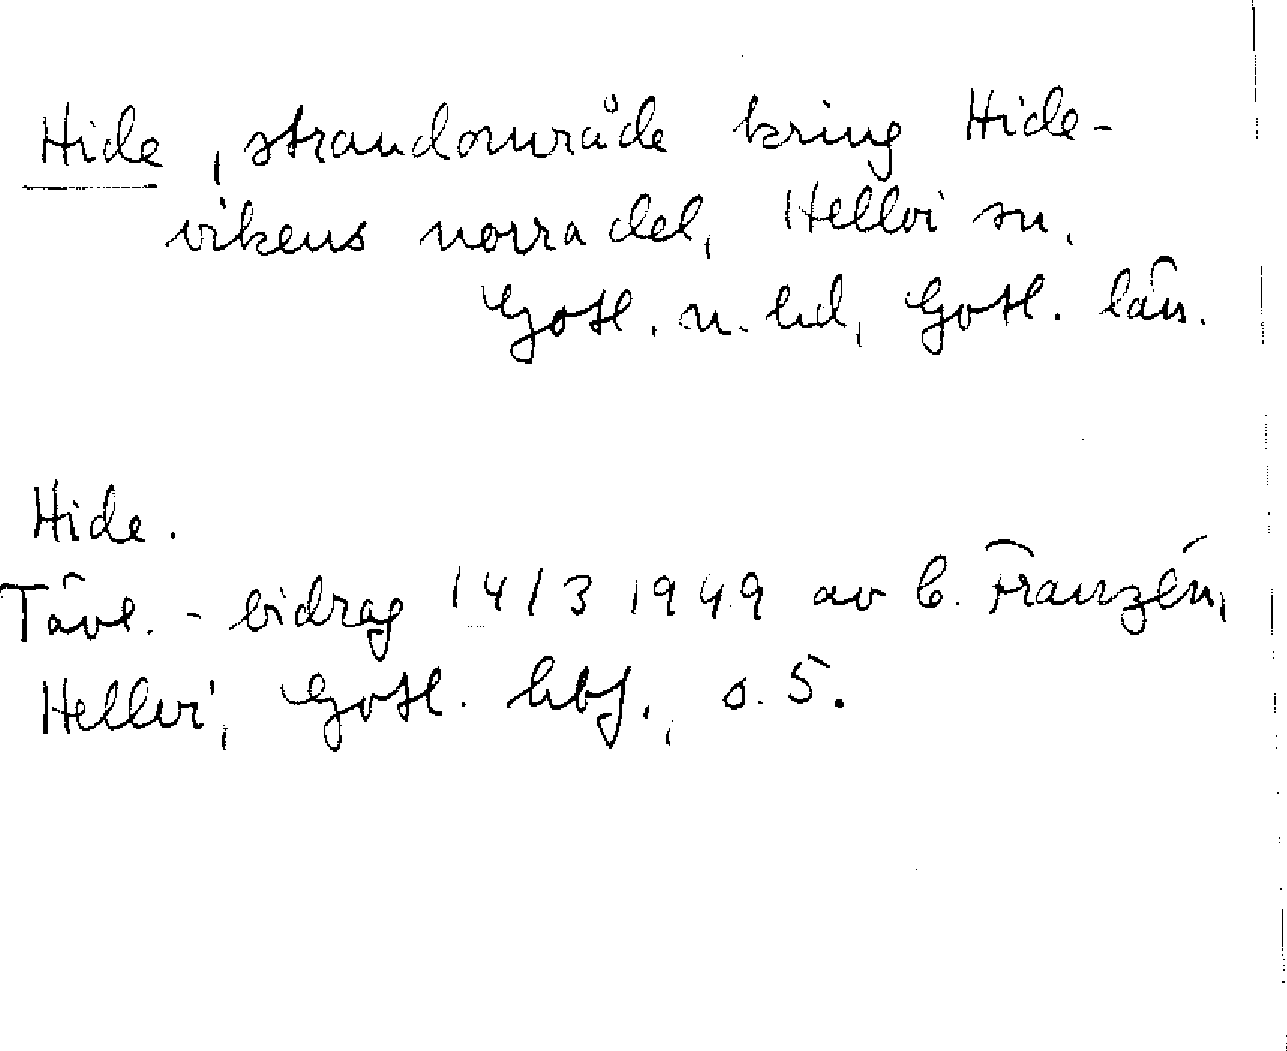 Hide, strandområde kring Hide-
vikens norra del, Hellvi sn.
Gotl. n. hd, Gotl. län.
Hide.
Tävl. - bidrag 14/3 1949 av C. Franzén,
Hellvi, Gotl. hbf., s. 5.